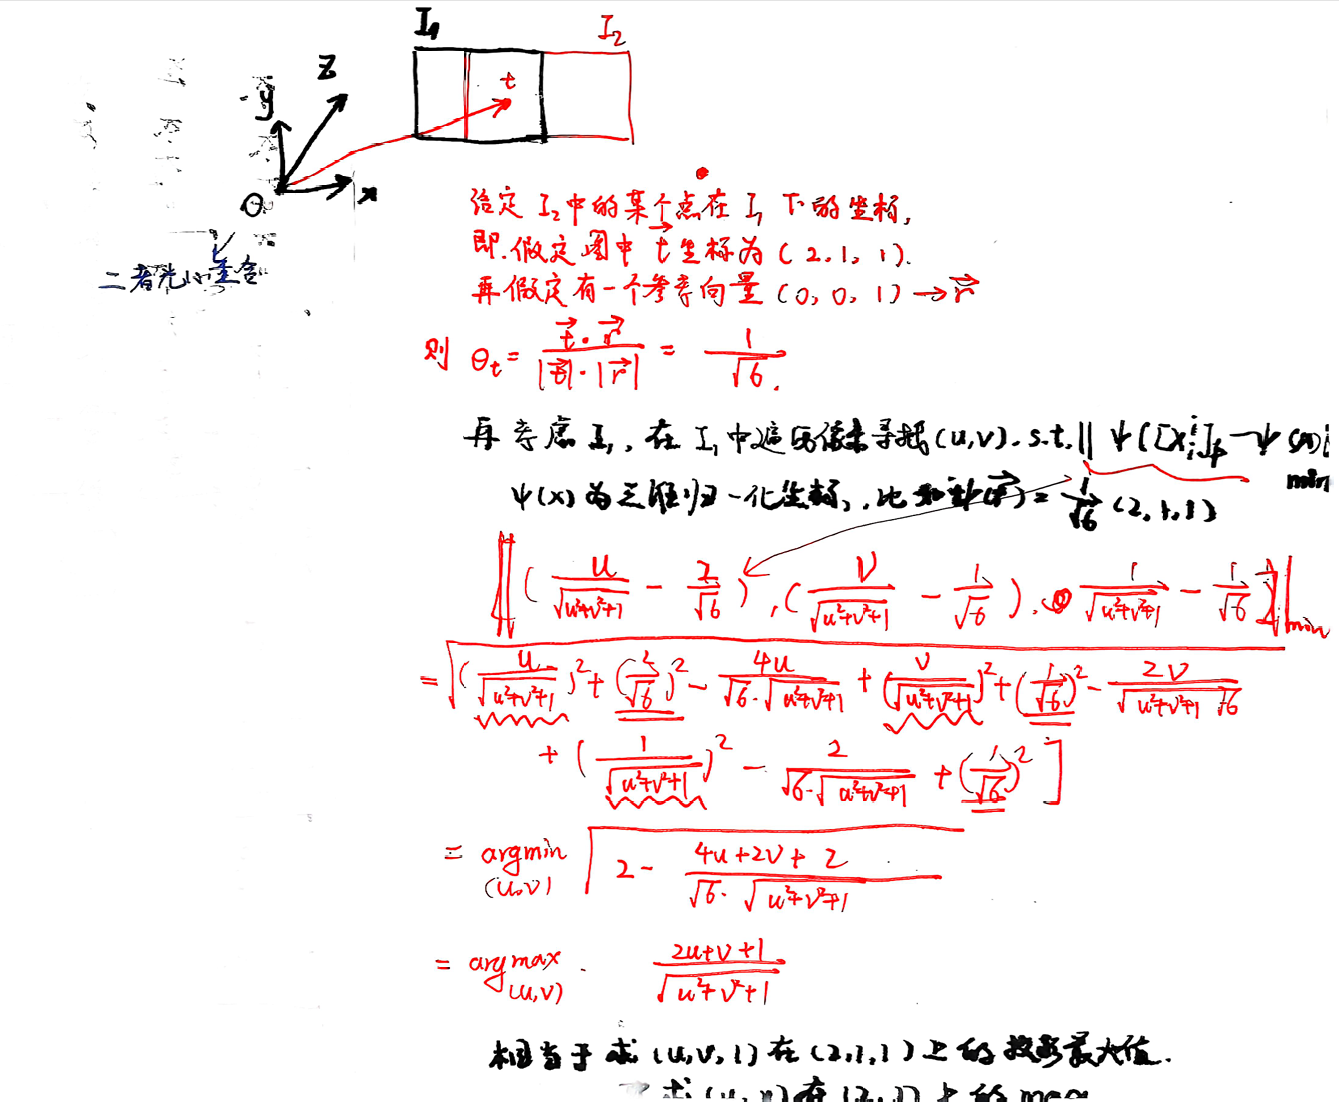 I₁ I₂
z
y t
O x
二者光心重合
给定 I₂中的某个点在 I₁ 下的坐标,
即.假定图中 t⃗ 坐标为 (2,1,1).
再假定有一个参考向量 (0,0,1) → r⃗
则 θt = t⃗·r⃗ / |t⃗|·|r⃗| = 1/√6.
再考虑 I₁, 在 I₁ 中遍历像素寻找 (u,v). s.t. ‖ ψ([x
min
ψ(x) 为三维归一化坐标, 比如 = 1/√6 (2,1,1)
‖ (u/√(u²+v²+1) − 2/√6), (v/√(u²+v²+1) − 1/√6), 1/√(u²+v²+1) − 1/√6 ‖min
= √[(u/√(u²+v²+1))² + (2/√6)² − 4u/(√6·√(u²+v²+1)) + (v/√(u²+v²+1))² + (1/√6)² − 2v/(√(u²+v²+1) √6)
+ (1/√(u²+v²+1))² − 2/(√6·√(u²+v²+1)) + (1/√6)² ]
= argmin (u,v) √(2 − (4u+2v+2)/(√6·√(u²+v²+1)))
= argmax (u,v) . (2u+v+1)/√(u²+v²+1)
相当于求 (u,v,1) 在 (2,1,1) 上的投影最大值.